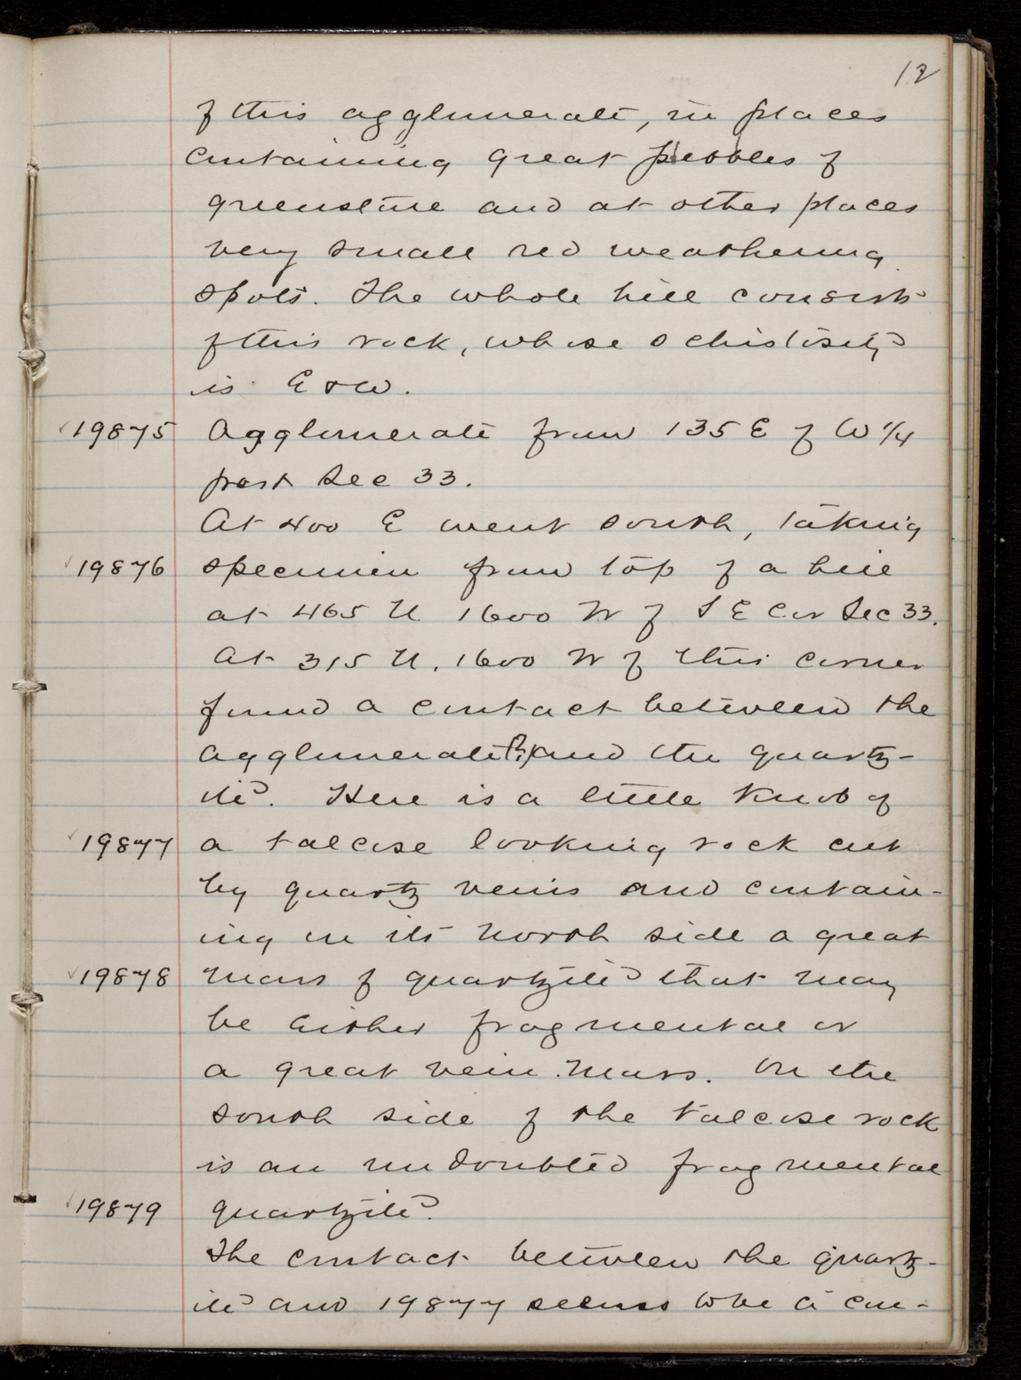 12
of this agglomerate, in places
containing great pebbles of
greenstone and at other places
very small red weathering
spots. The whole hill consists
of this rock, whose schistosity
is E & W.
19875 Agglomerate from 135 E of W 1/4
post Sec 33.
At 400 E went south, taking
19876 specimen from top of a hill
at 465 N 1600 W of S E Cor Sec 33.
At 315 N. 1600 W of this corner
found a contact between the
agglomerate(?) and the quartz-
ite. Here is a little knob of
19877 a talcose looking rock cut
by quartz veins and contain-
ing in its north side a great
19878 mass of quartzite that may
be either fragmental or
a great vein mass. On the
south side of the talcose rock
is an undoubted fragmental
19879 quartzite.
The contact between the quartz-
ite and 19877 seems to be a con-